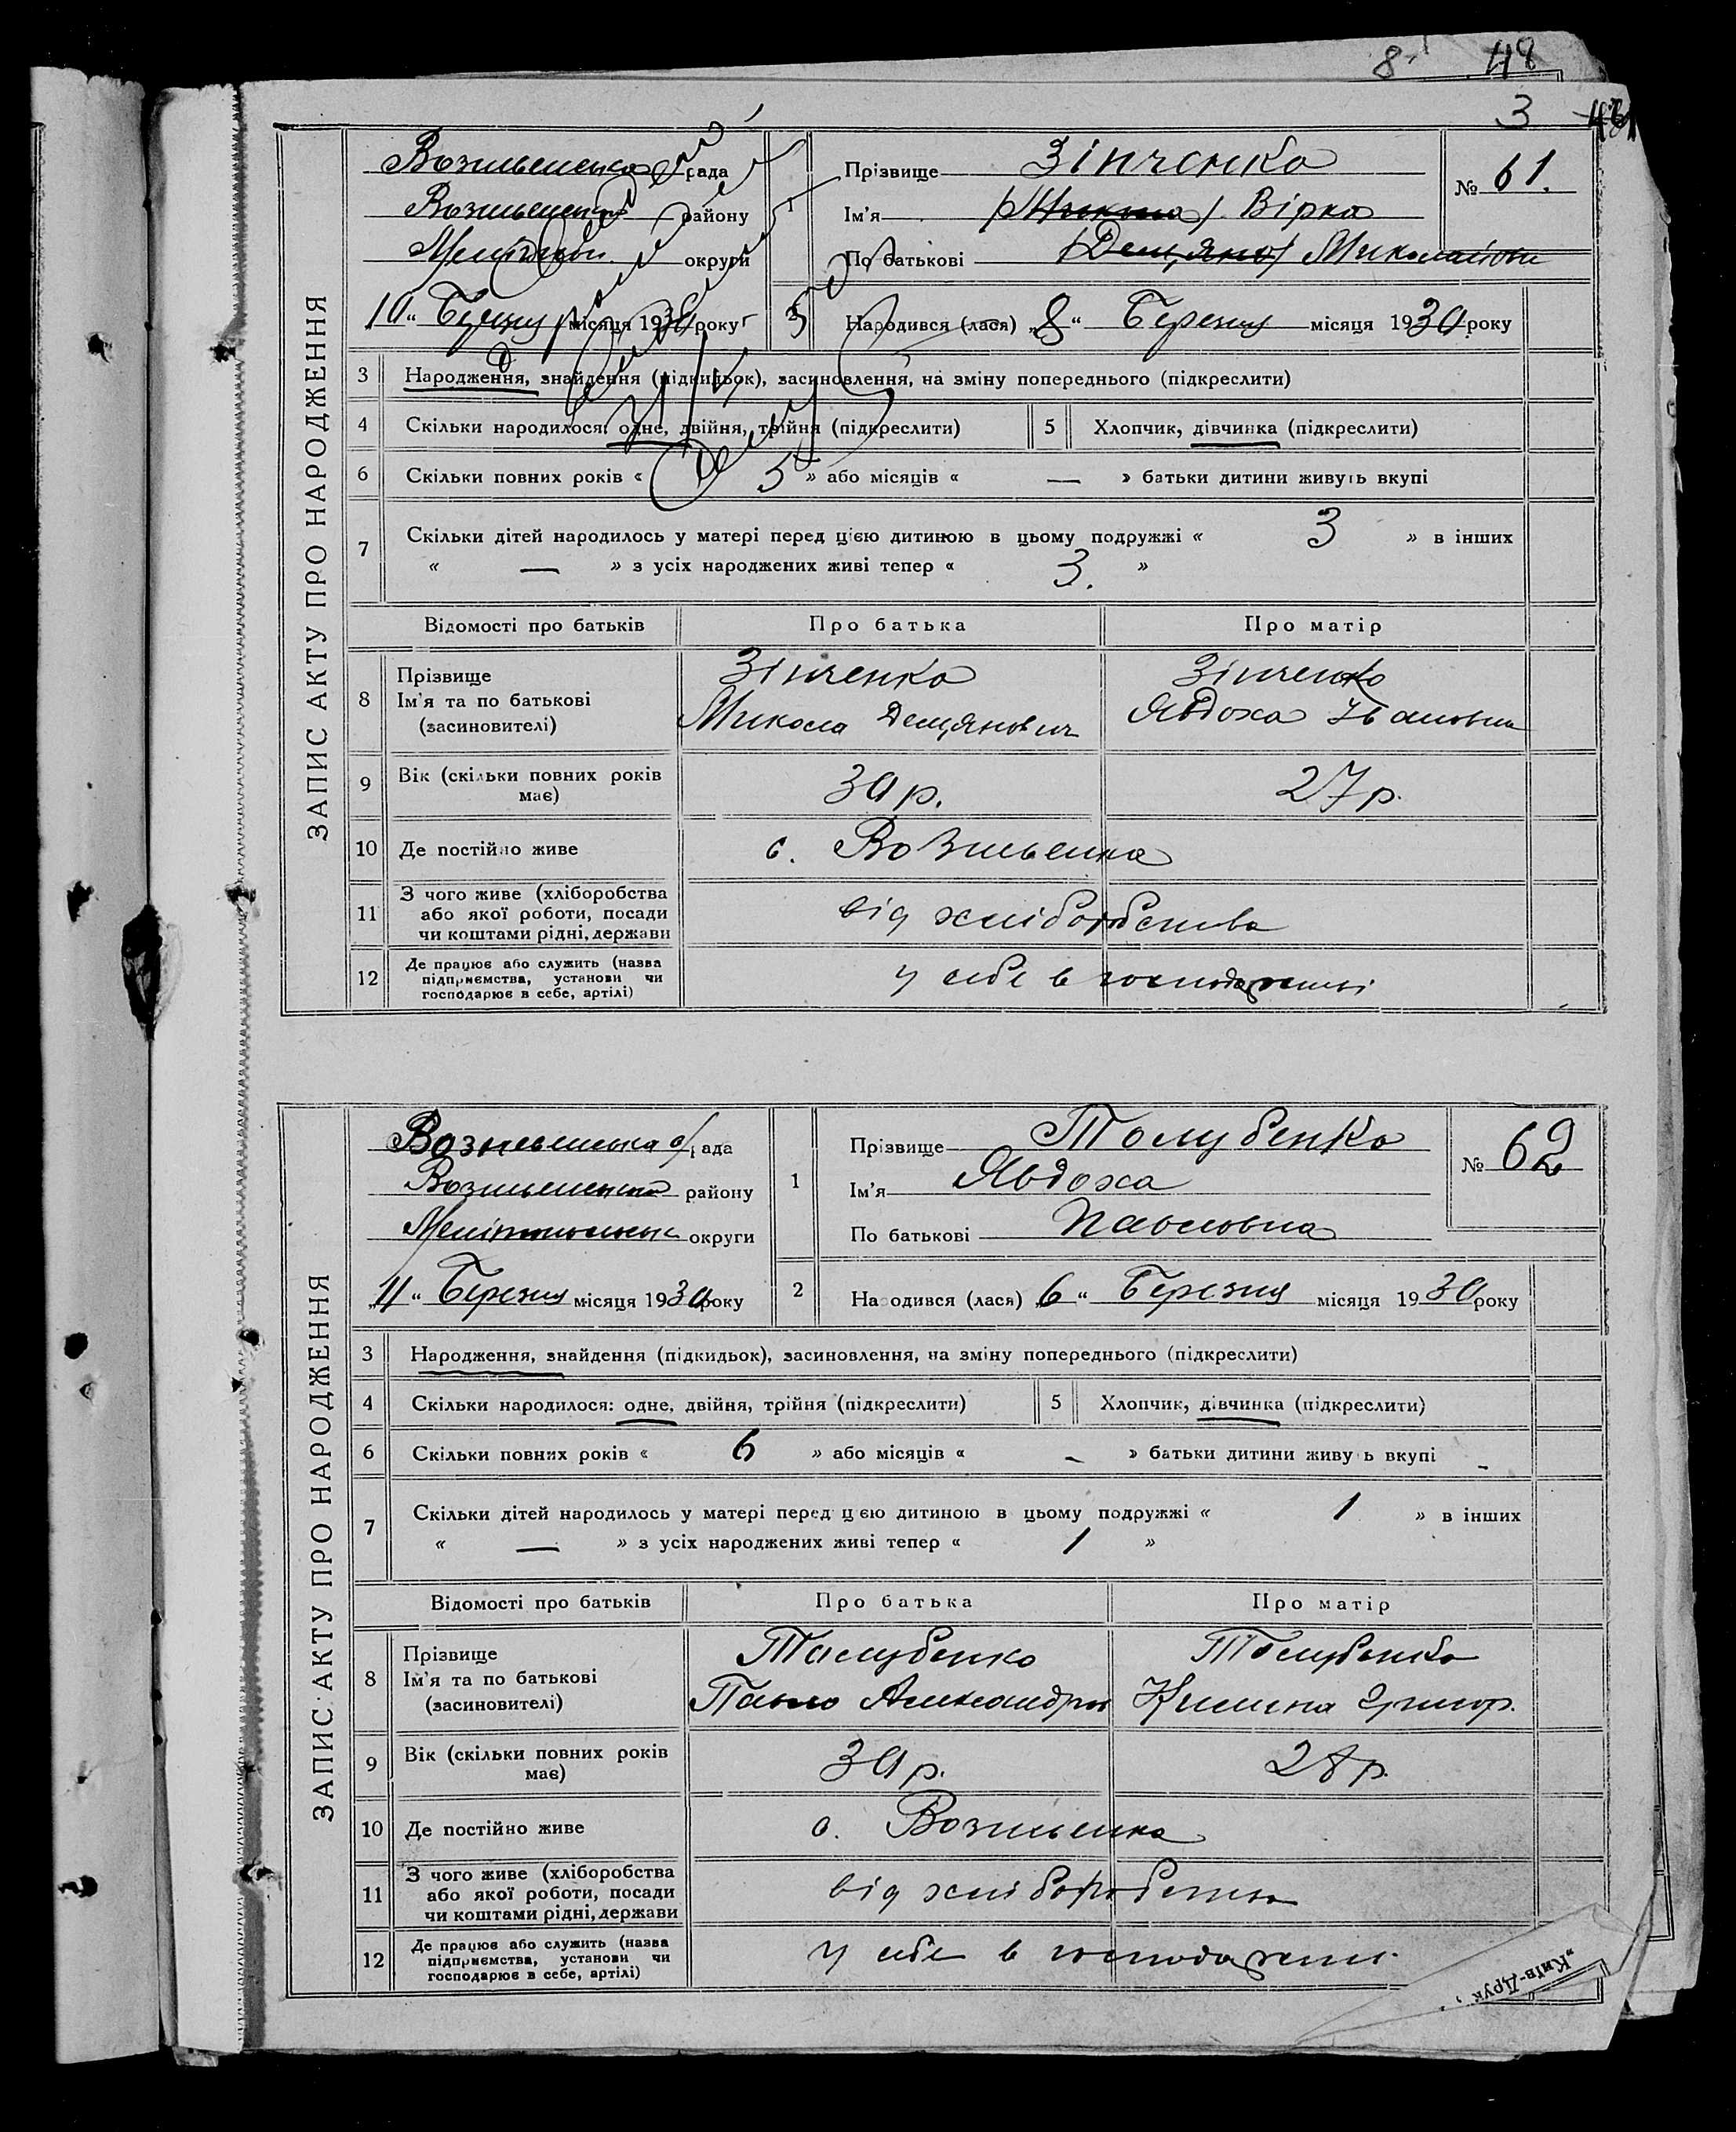 8 48
3
ЗАПИС АКТУ ПРО НАРОДЖЕННЯ
рада
району
Меліт округи
"10" Березня місяця 1930 року
1 Прізвище Зінченко
Ім'я Вірка
По батькові Миколаївна
№ 61.
Народився (лася) "8" Березня місяця 1930 року
3 Народження, знайдення (підкидьок), засиновлення, на зміну попереднього (підкреслити)
4 Скільки народилося: одне, двійня, трійня (підкреслити) 5 Хлопчик, дівчинка (підкреслити)
6 Скільки повних років « 5 » або місяців « — » батьки дитини живуть вкупі
7 Скільки дітей народилось у матері перед цією дитиною в цьому подружжі « 3 » в інших
« — » з усіх народжених живі тепер « 3. »
Відомості про батьків Про батька Про матір
8 Прізвище Зінченко Зінченко
Ім'я та по батькові Микола Демянович Явдоха Івановна
(засиновителі)
9 Вік (скільки повних років має) 30 р. 27 р.
10 Де постійно живе с. Вознесенка
11 З чого живе (хліборобства
або якої роботи, посади від хліборобства
чи коштами рідні, держави
12 Де працює або служить (назва
підприємства, установи чи у себе в господарстві
господарює в себе, артілі)
ЗАПИС АКТУ ПРО НАРОДЖЕННЯ
Вознесенська с/рада
району
округи
"11" Березня місяця 1930 року
1 Прізвище Толубенко
Ім'я Явдоха
По батькові Павловна
№ 62
2 Народився (лася) "6" Березня місяця 1930 року
3 Народження, знайдення (підкидьок), засиновлення, на зміну попереднього (підкреслити)
4 Скільки народилося: одне, двійня, трійня (підкреслити) 5 Хлопчик, дівчинка (підкреслити)
6 Скільки повних років « 6 » або місяців « - » батьки дитини живуть вкупі -
7 Скільки дітей народилось у матері перед цією дитиною в цьому подружжі « 1 » в інших
« — » з усіх народжених живі тепер « 1 »
Відомості про батьків Про батька Про матір
8 Прізвище Толубенко Толубенко
Ім'я та по батькові Павло Александров Килина Григор.
(засиновителі)
9 Вік (скільки повних років має) 30 р. 28 р.
10 Де постійно живе с. Вознесенка
11 З чого живе (хліборобства
або якої роботи, посади від хліборобства
чи коштами рідні, держави
12 Де працює або служить (назва
підприємства, установи чи у себе в господарстві
господарює в себе, артілі)
„Київ-Друк"